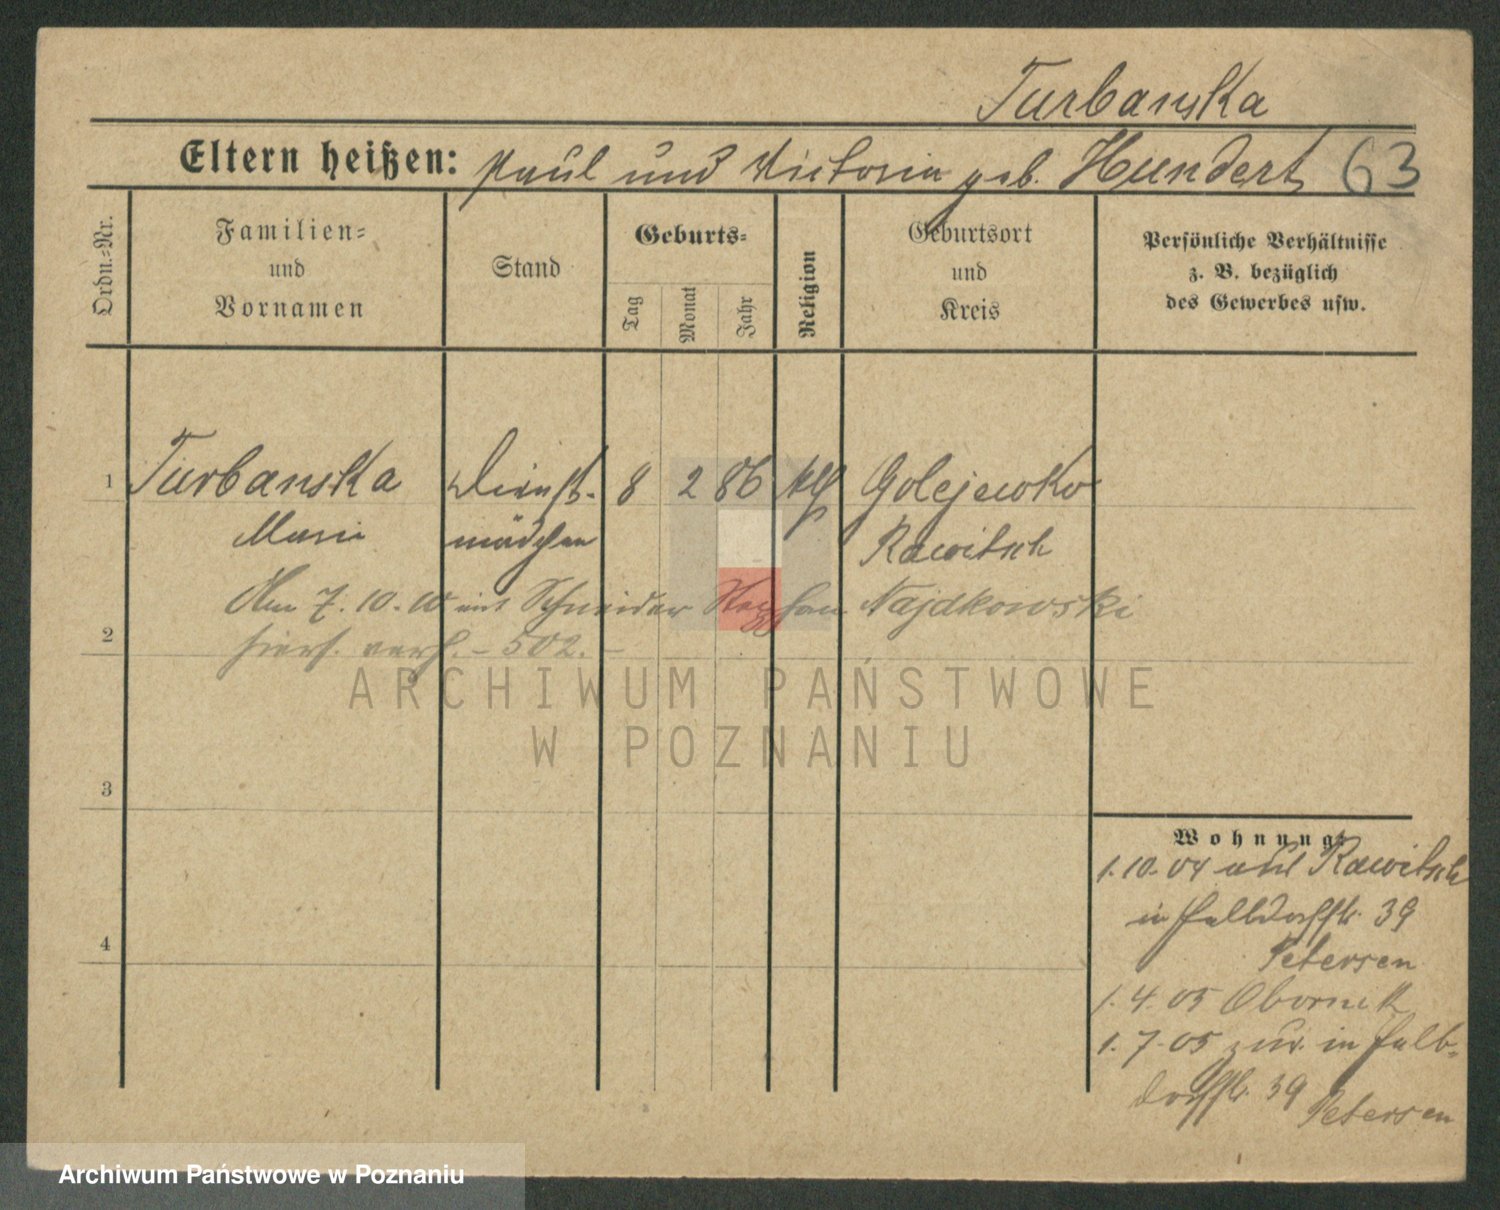 Turbanska
Eltern heißen: Paul und Victoria geb. Hundert 63
Ordn.=Nr.
Familien=
und
Vornamen
Stand
Geburts=
Tag
Monat
Jahr
Religion
Geburtsort
und
Kreis
Persönliche Verhältnisse
z. B. bezüglich
des Gewerbes usw.
1 Turbanska Dienst- 8 2 86 Golejewko
Marie mädchen Rawitsch
Am 7. 10. 10 mit Schneider Najdkowski
2 hiers. verh. - 502. -
ARCHIWUM PAŃSTWOWE
W POZNANIU
3
4
Wohnung:
1. 10. 04 aus Rawitsch
in Halbdorffstr. 39
Petersen
1. 4. 05 Obornik
1. 7. 05 zur. in Halb-
dorffstr. 39 Petersen
Archiwum Państwowe w Poznaniu